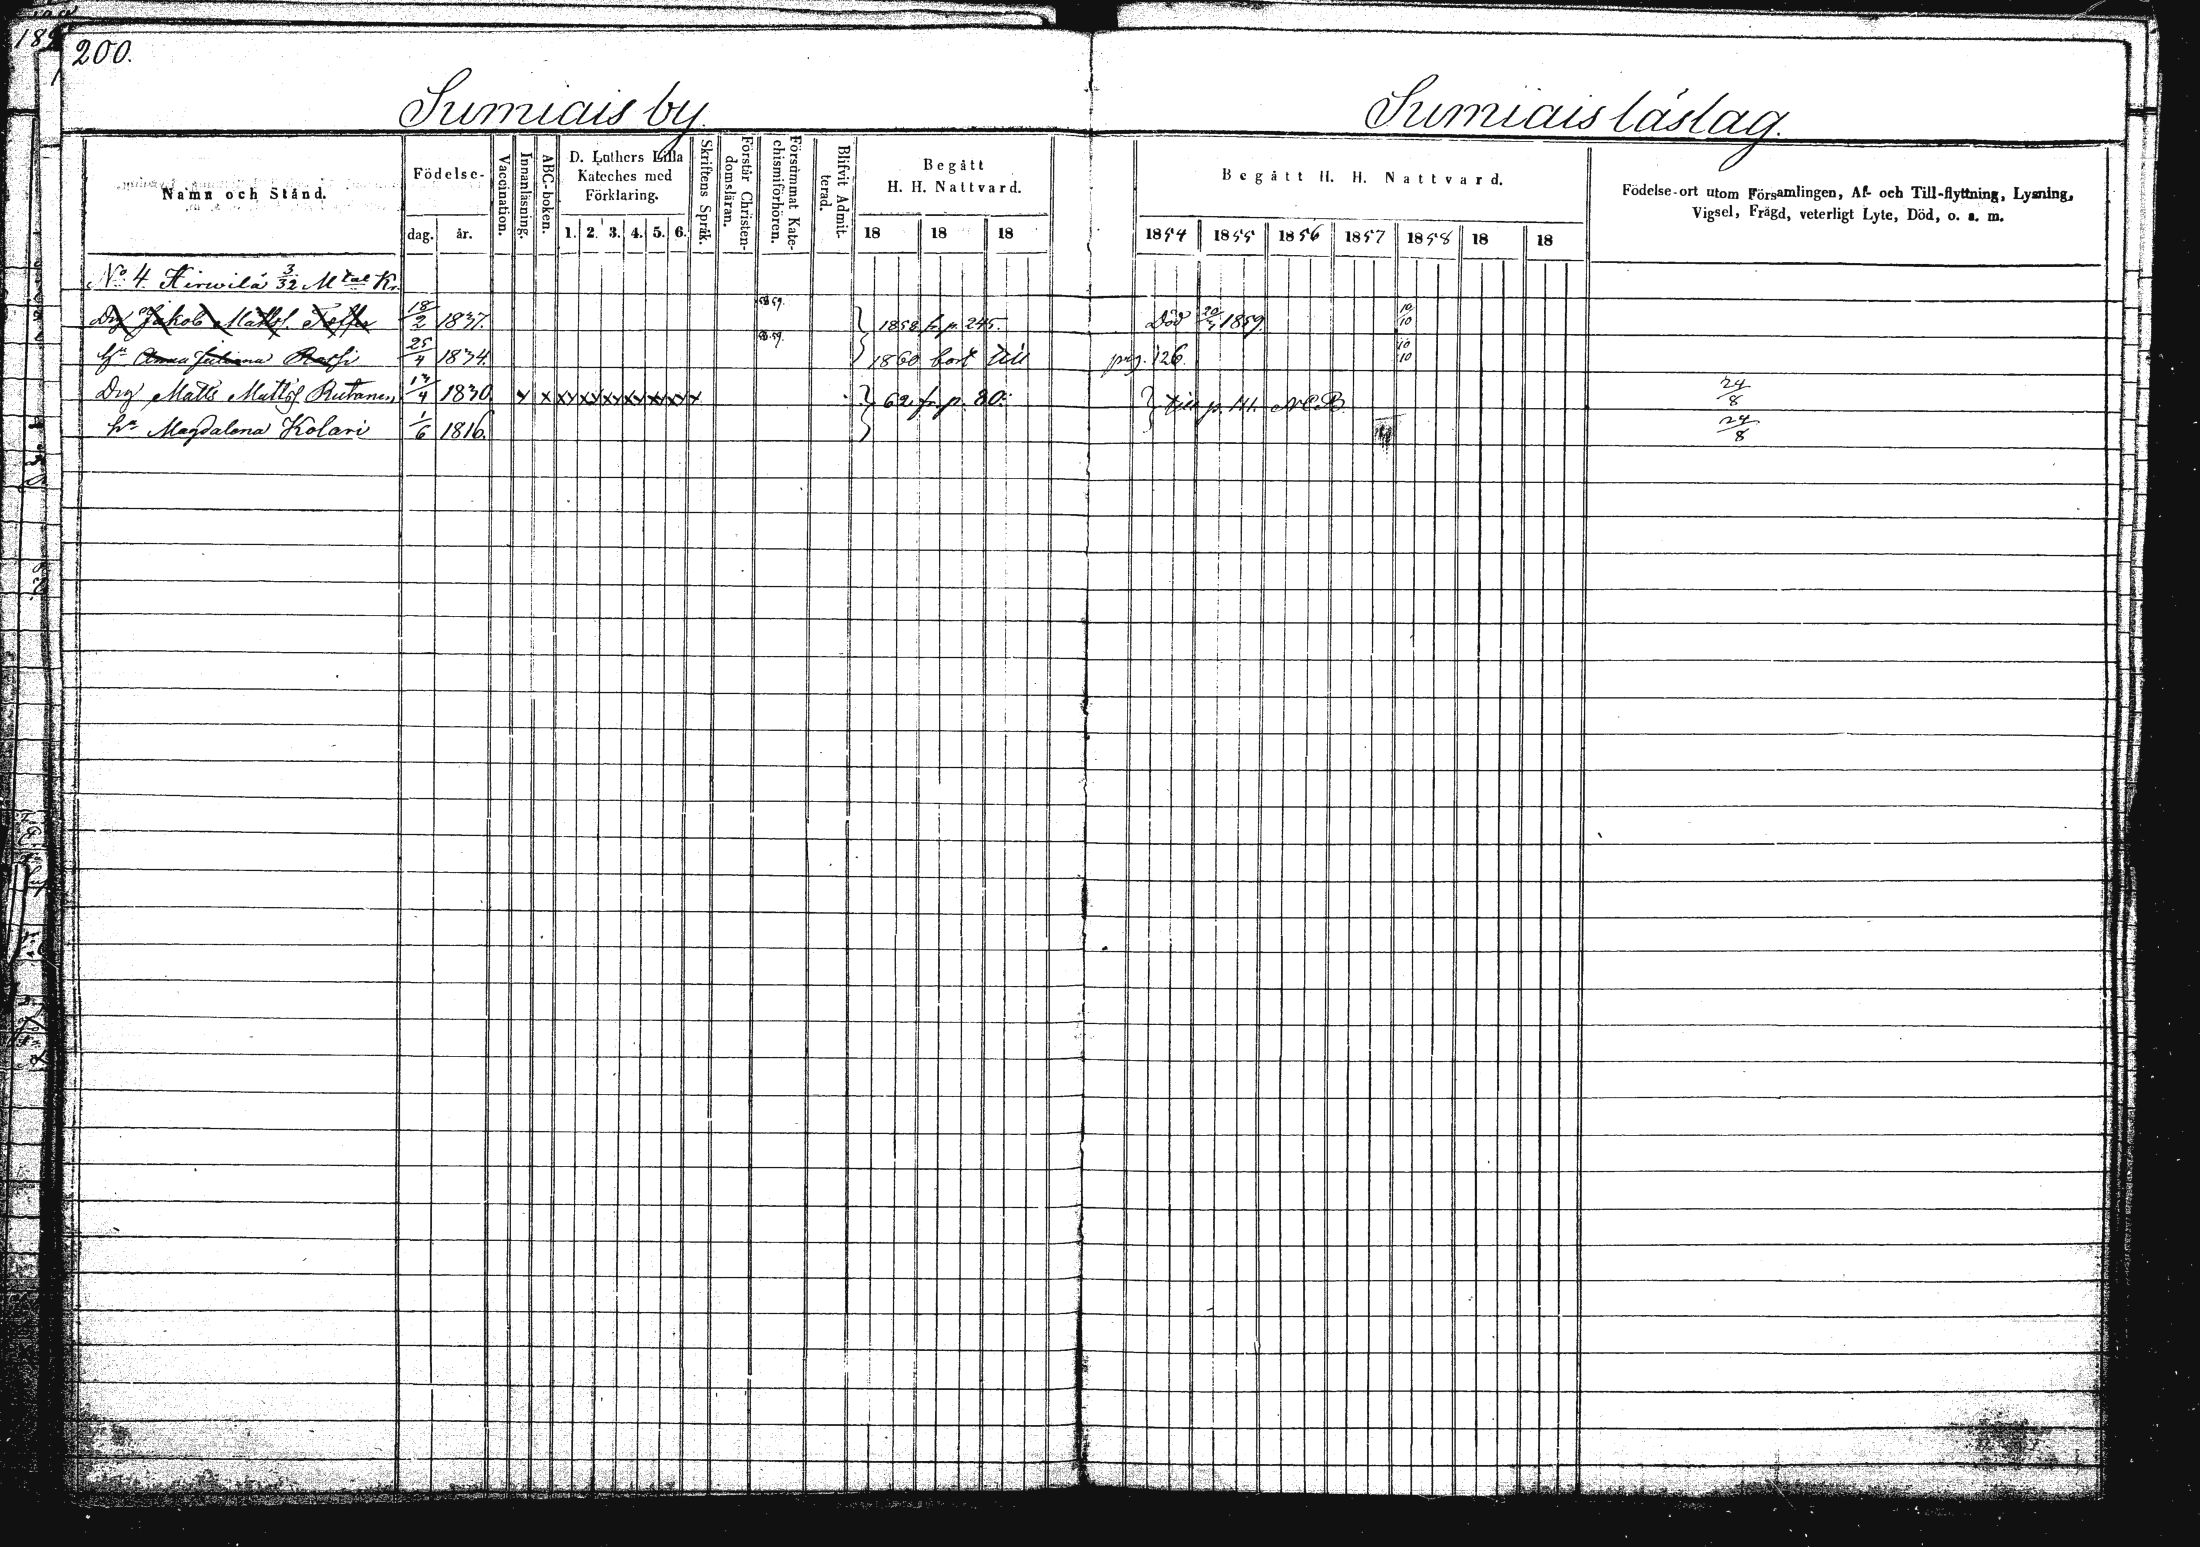 200.
Sumiais by.
Sumiais läslag.
Namn och Stånd.
Födelse-
dag. år.
Vaccination.
Innanläsning.
ABC-boken.
D. Luthers Lilla
Kateches med
Förklaring.
1. 2. 3. 4. 5. 6.
Skriftens Språk.
Förstår Christen-
domsläran.
Försummat Kate-
chismiförhören.
Blifvit Admit-
terad.
Begått
H. H. Nattvard.
18 18 18
Begått H. H. Nattvard.
1854 1855 1856 1857 1858 18 18
Födelse-ort utom Församlingen, Af- och Till-flyttning, Lysning,
Vigsel, Frägd, veterligt Lyte, Död, o. s. m.
No 4 Hirwilä 3/32 Mtal Kr.
Drg Jakob Mattss. 18/2 1837. 58 59. 1858 fr. p. 245. Död 1859. 10/10
hu Anna Juliana 25/4 1834. 58.59. 1860 bort till pag. 126. 10/10
Drg Matts Mattss Rutanen 13/4 1830. x x xy xy xy xy xy xy x 62 fr. p. 80. till p. 111. N.C.B. 24/8
hu Magdalena Kolari 1/6 1816. 24/8